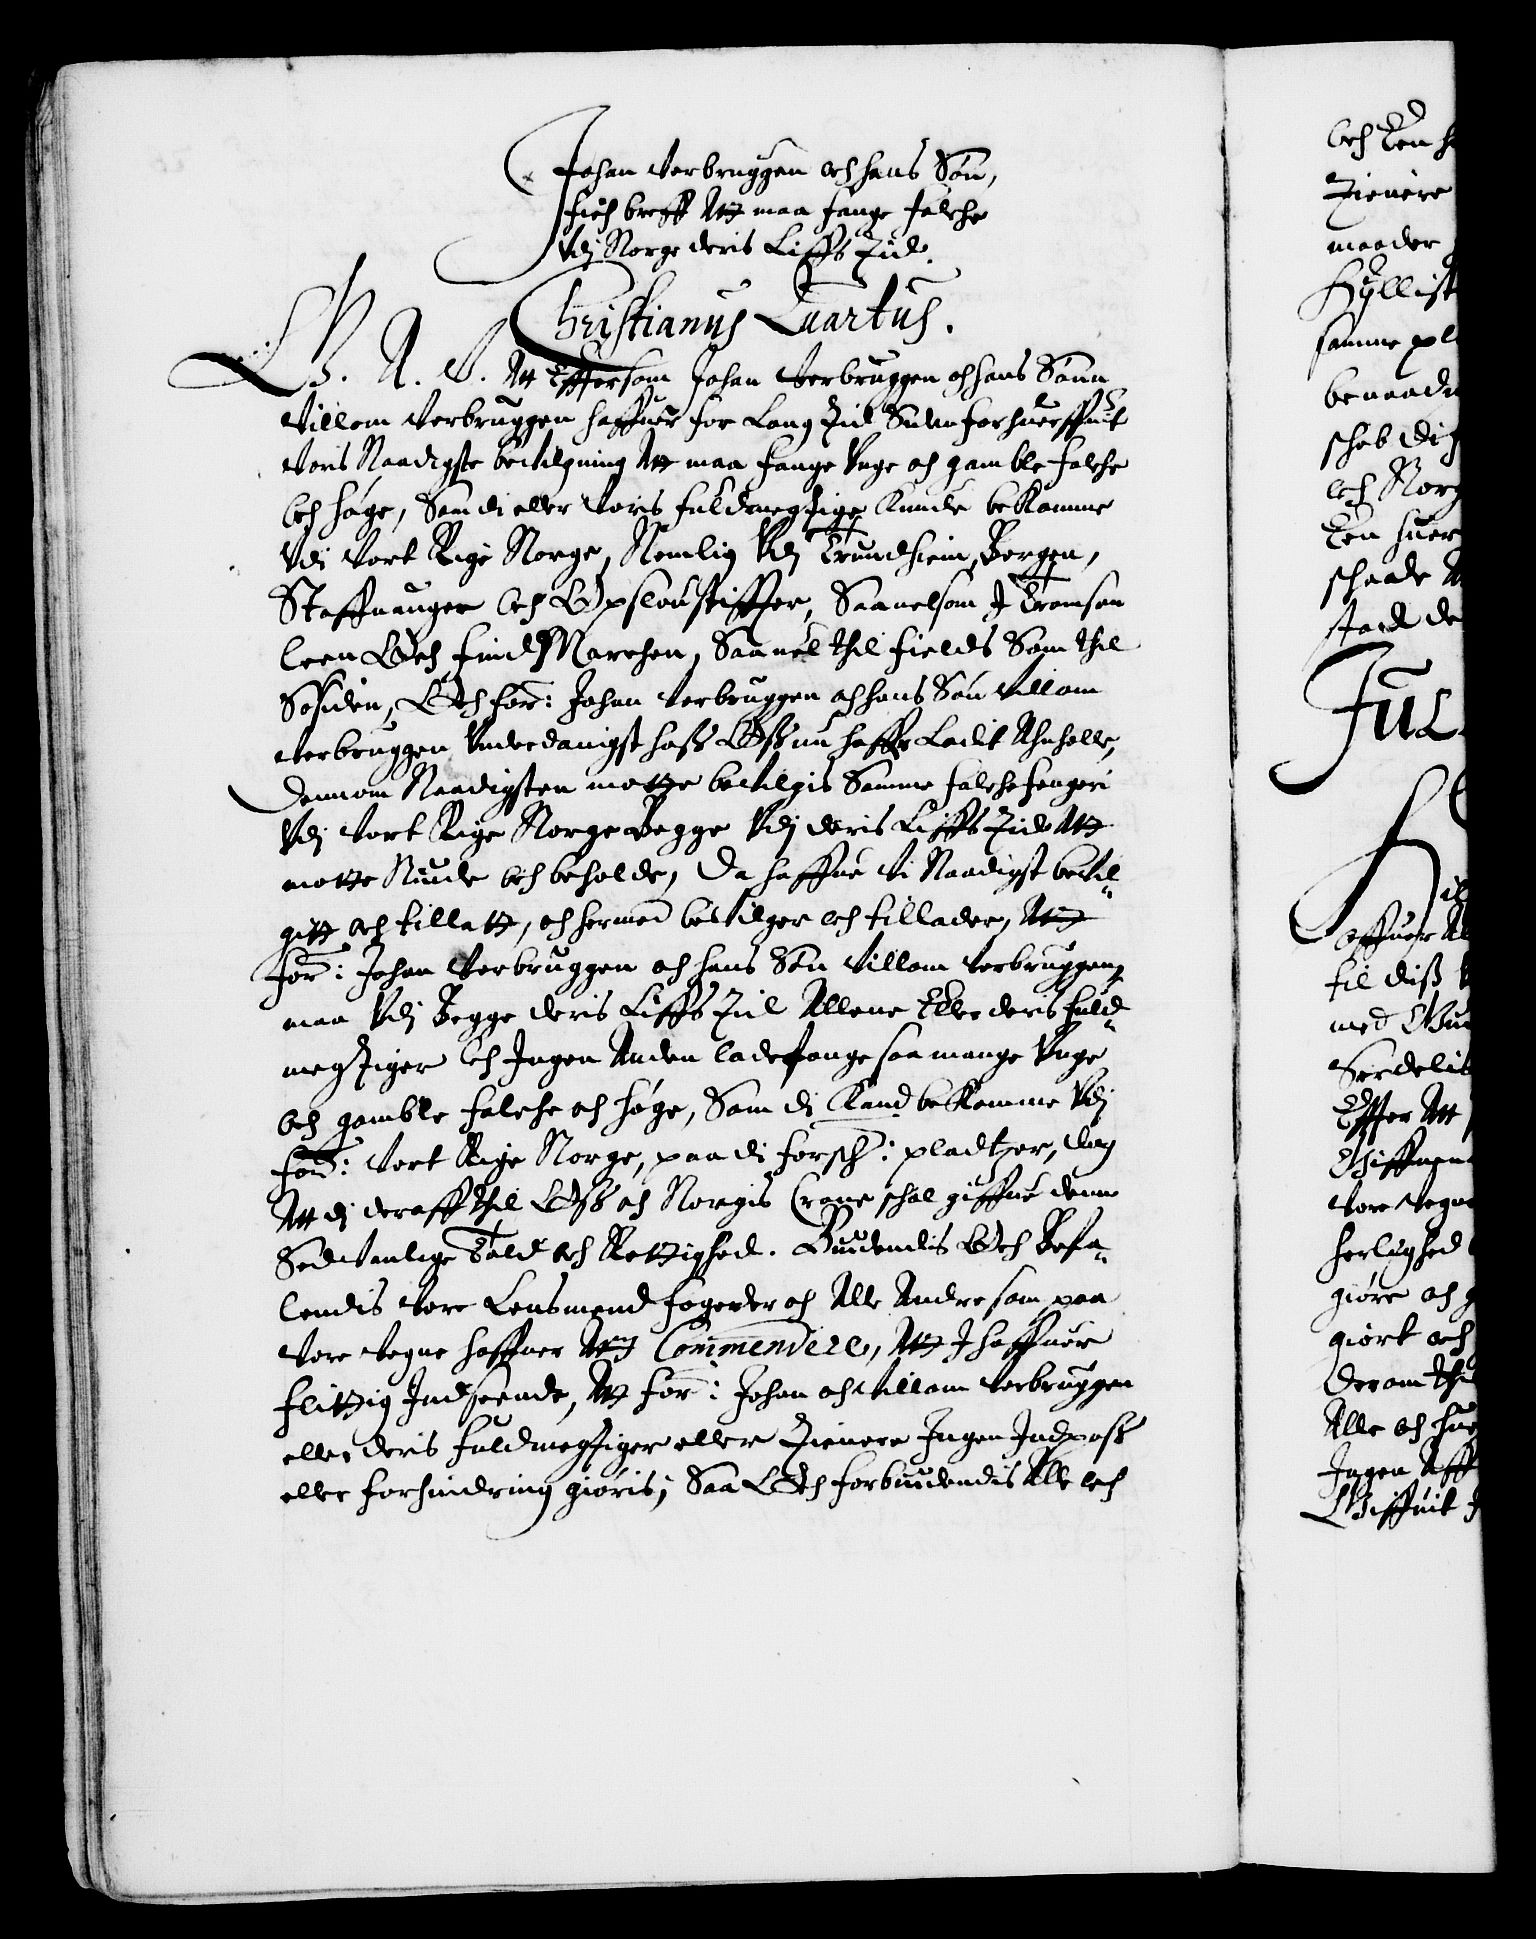 Johan Verbruggen och hans Sön,
fich breff Att maa fange falche
Vdj Norge deris Liffs Tid.
Christianus Quartus.
G. A. V. Att Effersom Johan Verbruggen och hans Sönn
Villom Verbruggen haffuer for Lang Tid Siden forhuerffuit
Voris Naadigste beVilgning Att maa fange Vnge och gamble falche
Och höge, Som di eller Voris fuldmegtige Kunde bekomme
Vdi Vort Rige Norge, Nemlig Vdj Trundhiem, Bergen,
Staffuanger Och Opslou stiffter, Saauelsom J Tromsen
leen Och find Marchen, Saauel thil fields Som thil
Söesiden, Och for: Johan Verbruggen och hans Sön Villom
Verbruggen Vnderdanigst hoss Oss nu haffr Ladit Anholle,
dennom Naadigsten motte beVilgis Samme falchefengeri
Vdj Vort Rige Norge Begge Vdj deris Liffs Tid Att
motte Niude Och beholde, Da haffue Vi Naadigst bevil„
gitt och tillatt, och hermed beVilger och tillader, Att
for: Johan Verbruggen och hans Sön Villom Verbruggen
maa Vdj Begge deris Liffs Tid Allene Eller deris fuld„
megtiger Och Ingen Anden lade fange saa mange Vnge
Och gamble falche och höge, Som di Kand bekomme Vdj
for: Vort Rige Norge, paa di forsch: pladtzer, dog
Att di deraff thil Oss och Norgis Crone schal giffue denn
SedVanlige Told och Rettighed. Biudendis Och Befa„
lendis Vore Lensmend fogeder och Alle Andre som paa
Vore Vegne haffuer Att Commendere, Att J haffuer
flittig Indseende, Att for: Johan och Villom Verbruggen
eller deris fuldmegtiger eller Tienere Ingen Indpass
eller forhindring giöris; Saa Och forbiudendis Alle och